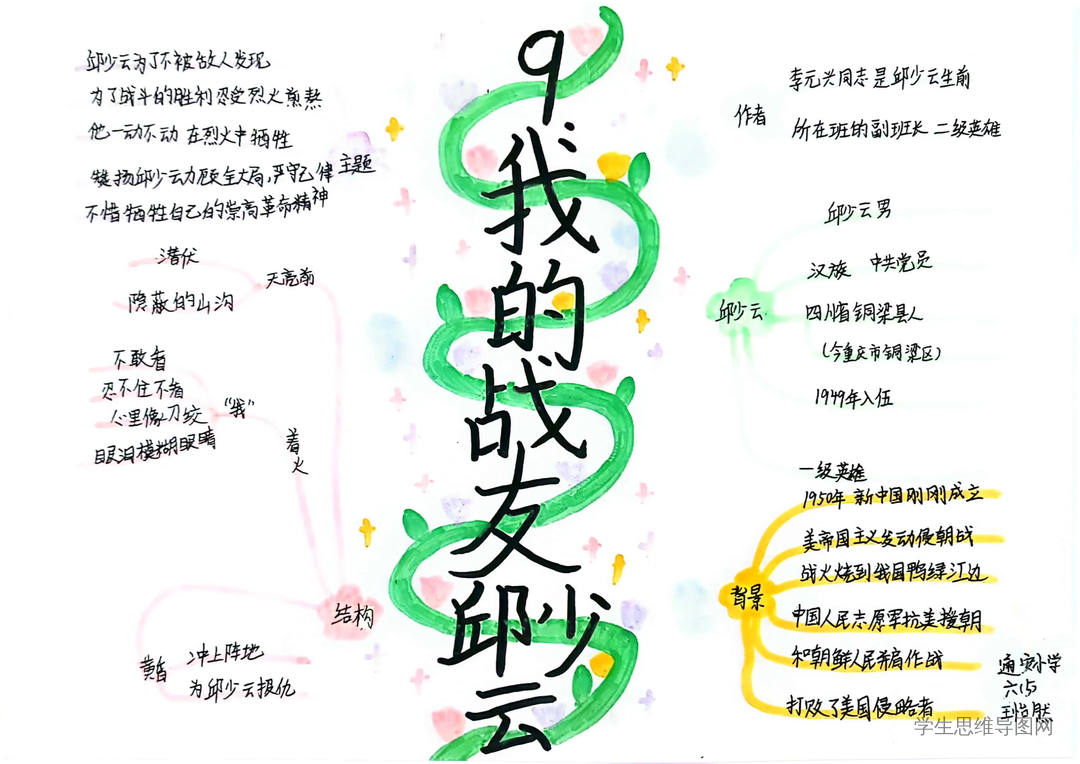 9我的战友邱少云
邱少云为了不被敌人发现
为了战斗的胜利忍受烈火煎熬
他一动不动 在烈火中牺牲
赞扬邱少云顾全大局,严守纪律
不惜牺牲自己的崇高革命精神
主题
潜伏
隐蔽的山沟
天亮前
不敢看
忍不住不看
心里像刀绞
眼泪模糊眼睛
“我”
着火
结构
黄昏
冲上阵地
为邱少云报仇
作者
李元兴同志是邱少云生前
所在班的副班长 二级英雄
邱少云
邱少云男
汉族 中共党员
四川省铜梁县人
(今重庆市铜梁区)
1949年入伍
一级英雄
背景
1950年 新中国刚刚成立
美帝国主义发动侵朝战
战火烧到我国鸭绿江边
中国人民志愿军抗美援朝
和朝鲜人民并肩作战
打败了美国侵略者
小学
学生思维导图网